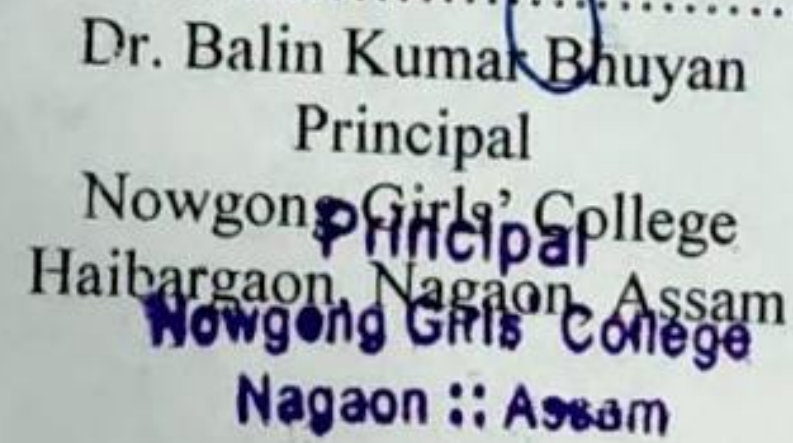 Dr. Balin Kumar Bhuyan
Principal
Nowgong Girls' College
Principal
Haibargaon, Nagaon, Assam
Nowgong Girls' College
Nagaon :: Assam